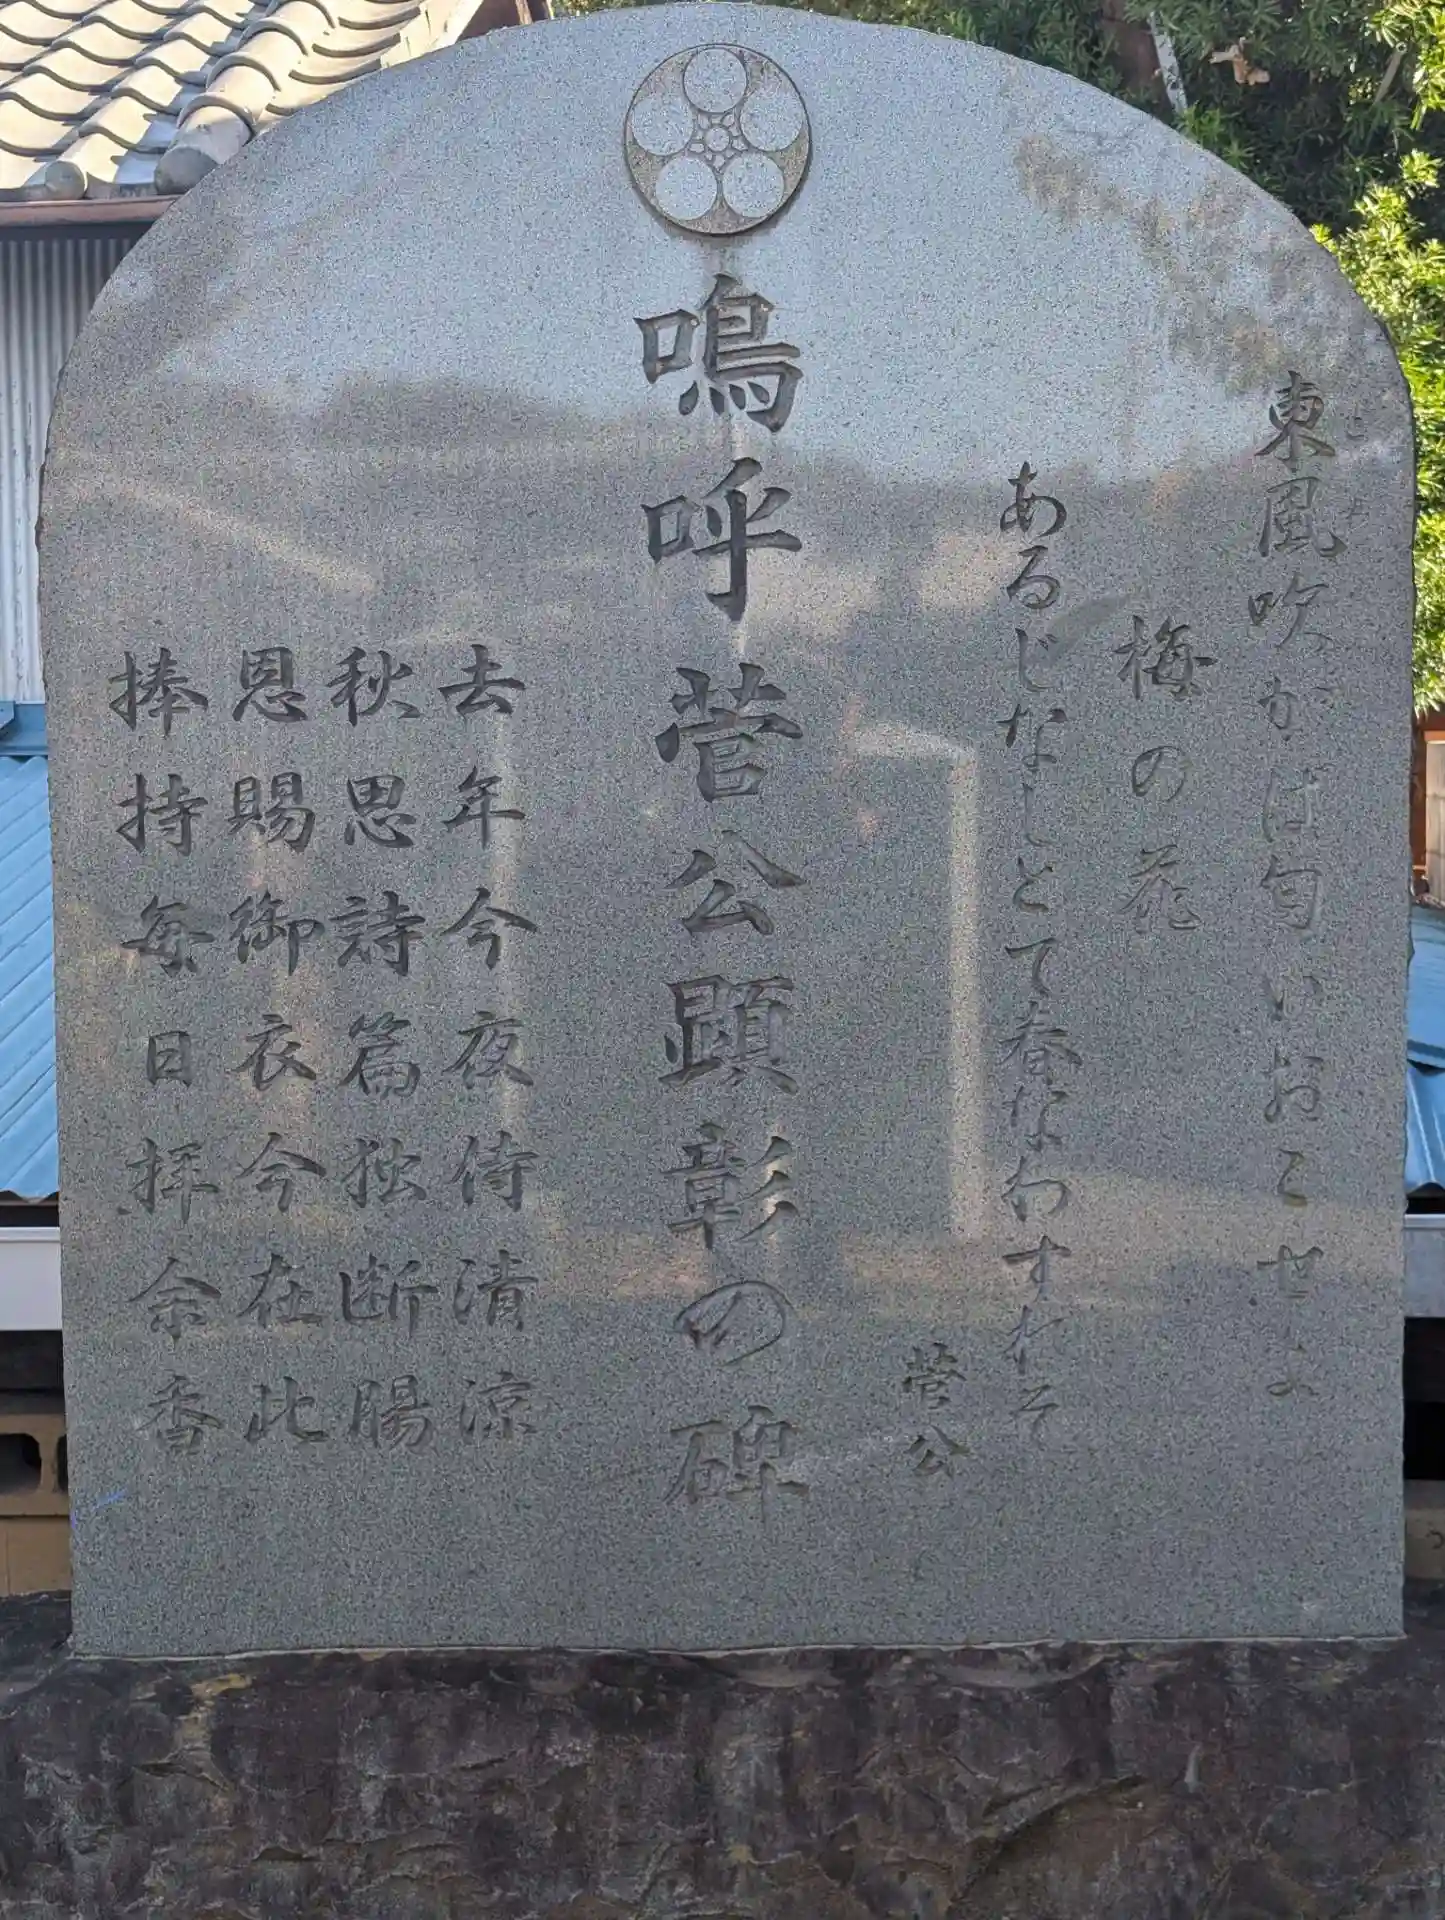 東風吹かば匂いおこせよ
梅の花
あるじなしとて春なわすれそ
菅公
鳴呼菅公顕彰の碑
去年今夜侍清涼
秋思詩篇独断腸
恩賜御衣今在此
捧持毎日拝余香